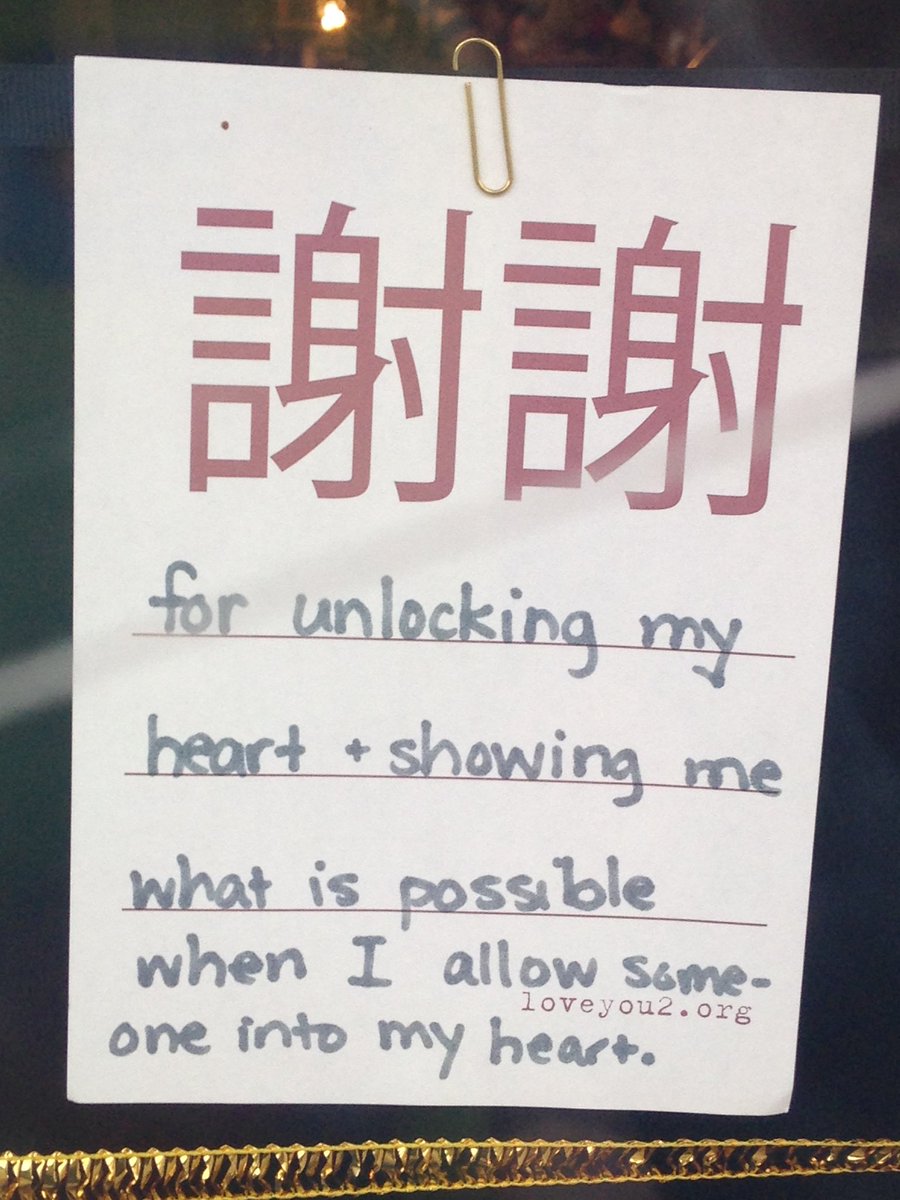 謝謝
for unlocking my
heart + showing me
what is possible
when I allow some-
loveyou2.org
one into my heart.